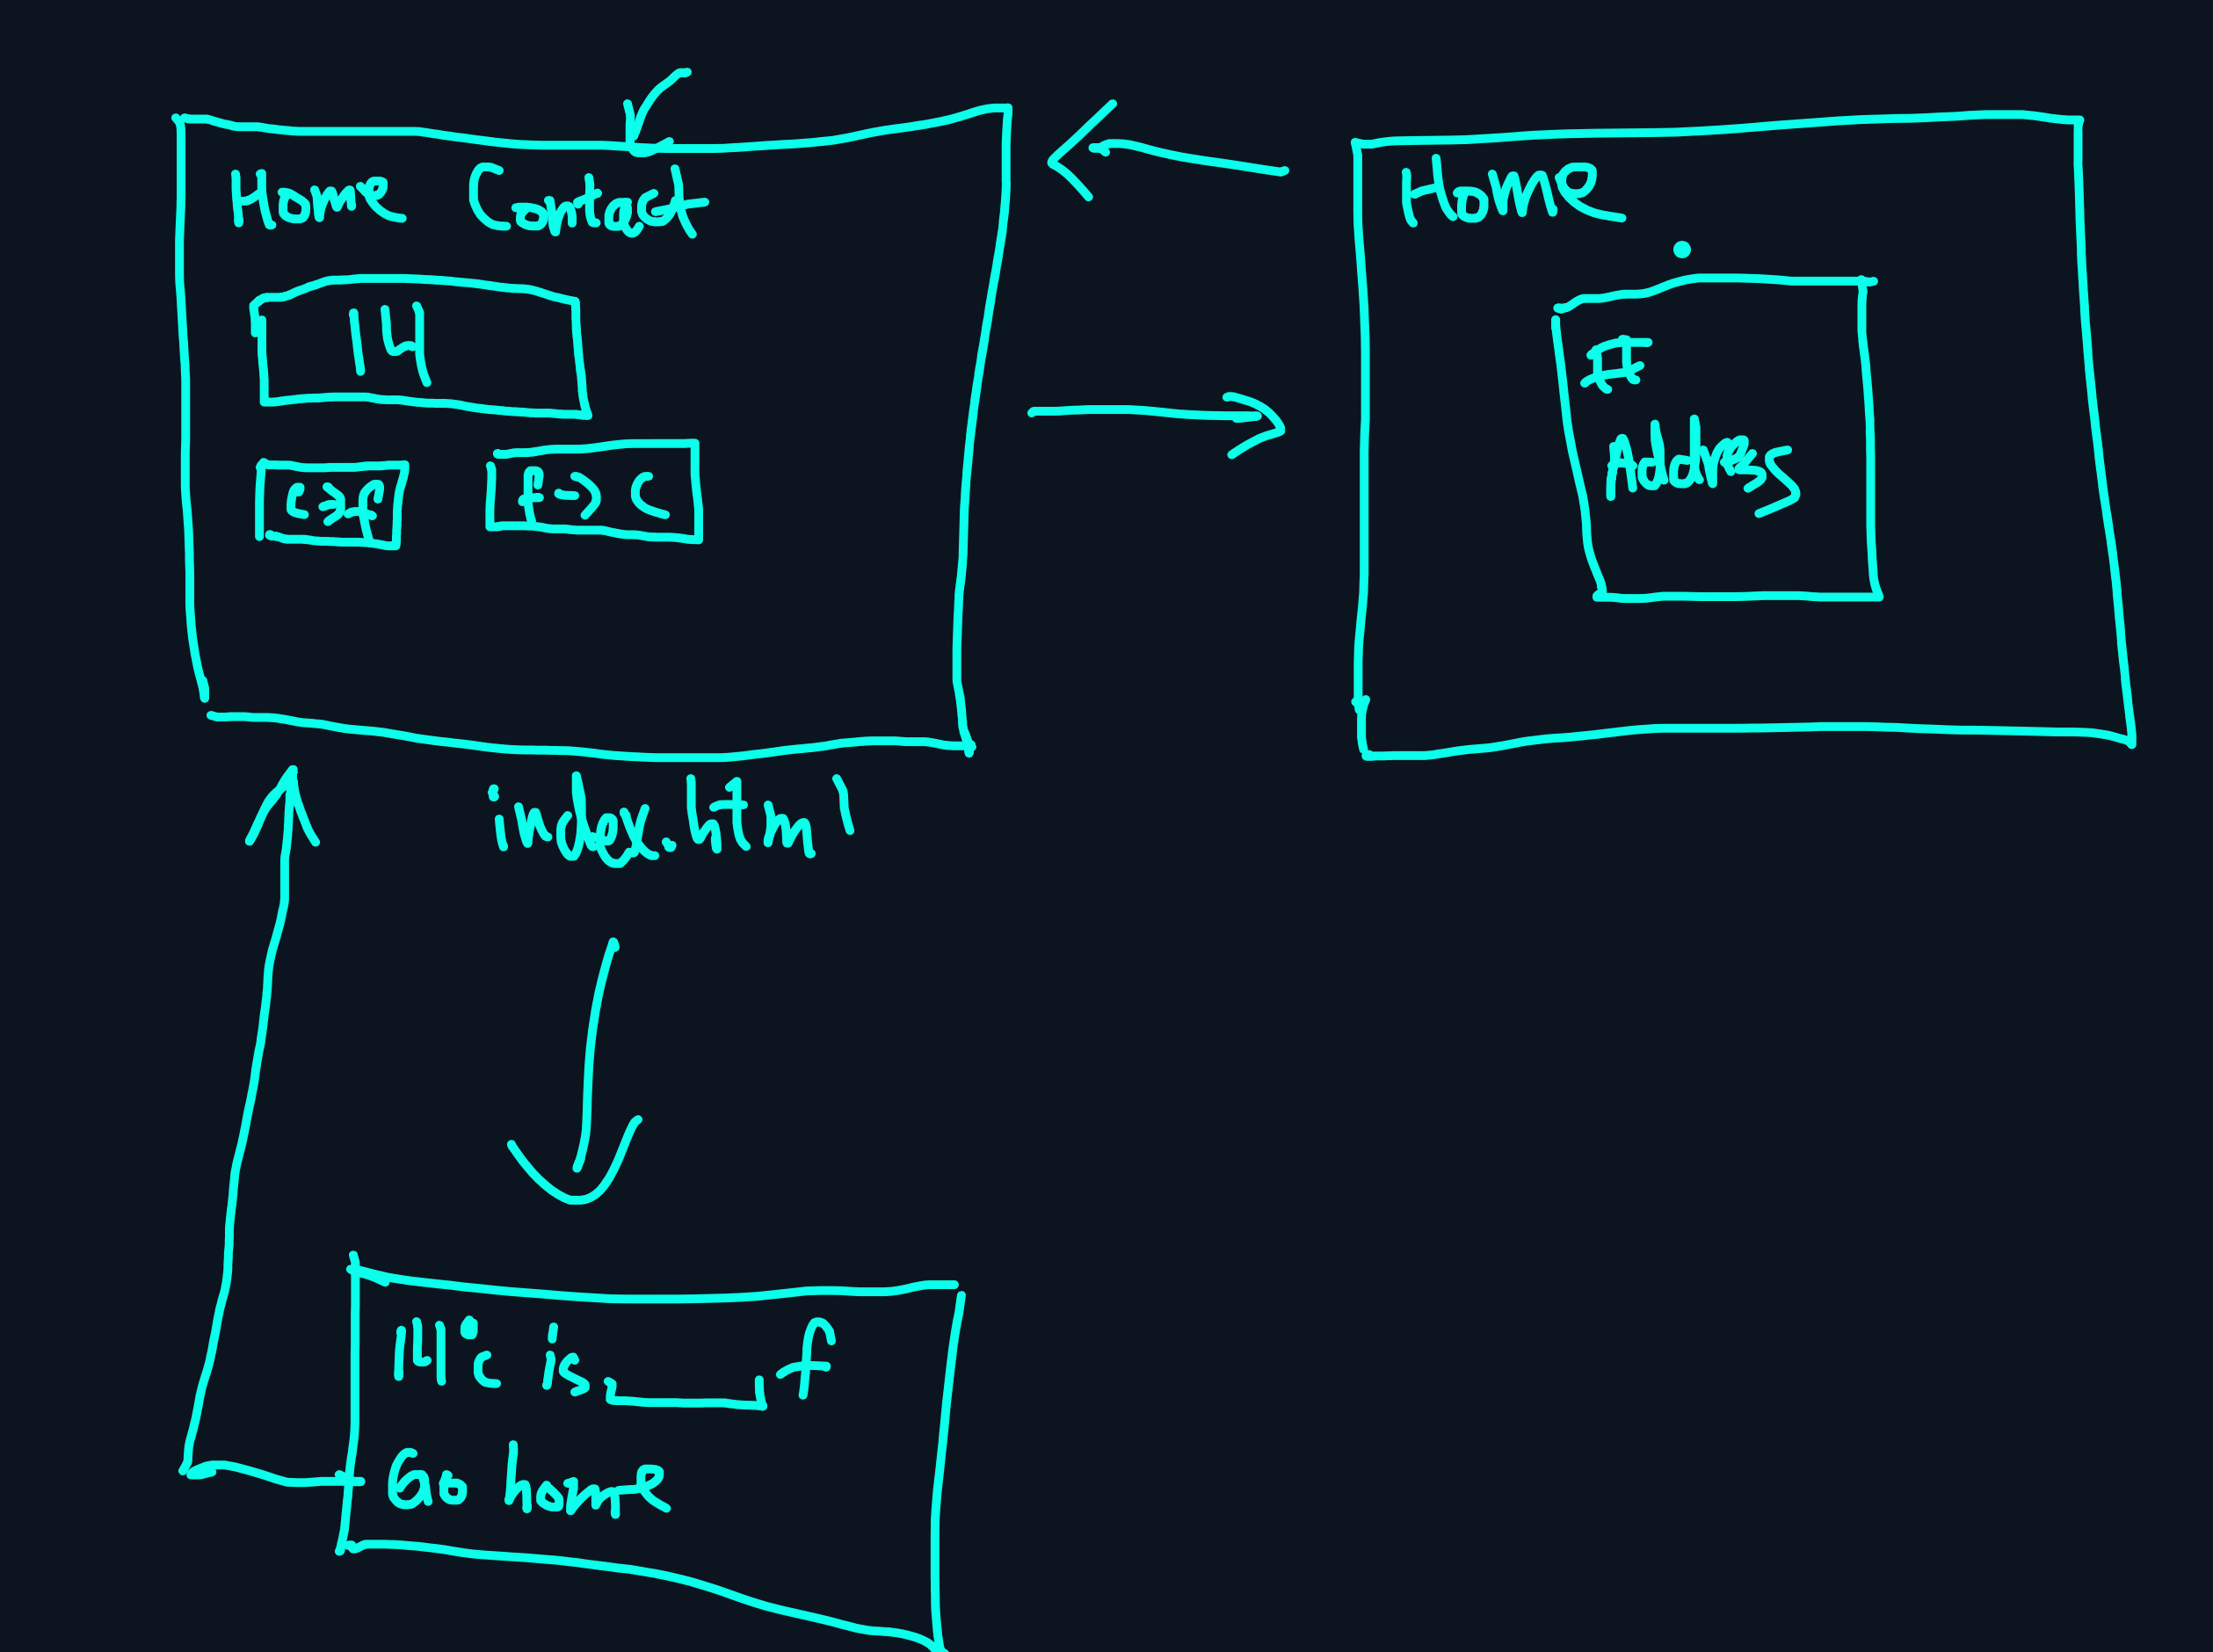 Home Contact
14
C->F
F->C
index.html
Home
Address
14°C is f
Go home